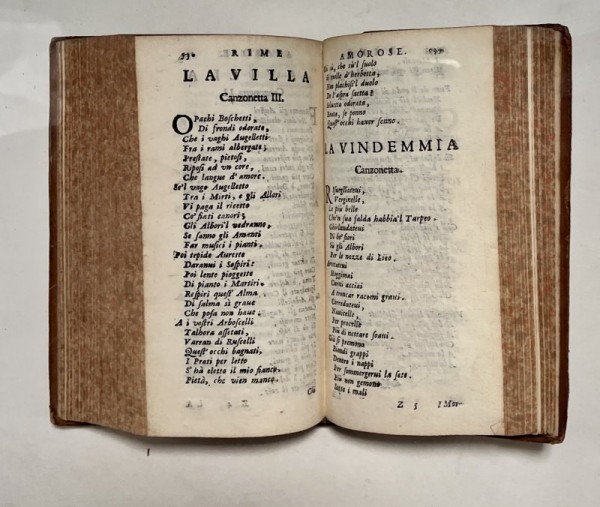 RIME
LA VILLA
Canzonetta III.
OPachi Boschetti,
Di frondi odorate,
Che i vaghi Augelletti
Fra i rami albergate;
Prestate, pietosi,
Riposi ad un core,
Che langue d'amore.
Se'l vago Augelletto
Tra i Mirti, e gli Allori
Vi paga il ricetto
Co' fiati canori;
Gli Albori'l vedranno,
Se sanno gli Amanti
Far musici i pianti,
Poi tepide Aurette
Daranui i Sospiri:
Poi lente pioggette
Di pianto i Martiri.
Respiri quest' Alma
Di salma sì graue
Che posa non haue.
A i vostri Arboscelli
Talhora assetati,
Varran di Ruscelli
Quest' occhi bagnati,
I Prati per letto
S'hà eletto il mio fianco,
Pietà, che vien manco.
Z 4
AMOROSE.
che sù'l suolo
d'herbetta,
Non plachisi'l duolo
De l'aspra saetta:
odorata,
se ponno
Quest' occhi hauer sonno.
LA VINDEMMIA
Canzonetta.
RIsuegliateui,
Verginelle,
Le più belle
Che'n sua falda habbia'l Tarpeo.
Ghirlandateui
Di be' fiori
Sù gli Albori
Per le nozze di Lieo.
Hoggimai
Curui acciai
A troncar racemi graui.
Corredateui,
Nauicelle,
Per procelle
Più di nettare soaui.
Già si premono
Biondi grappi
Dentro i nappi
Per sommergerui la sete.
Più non gemono
Sotto i mali
Z 5
I Mor-